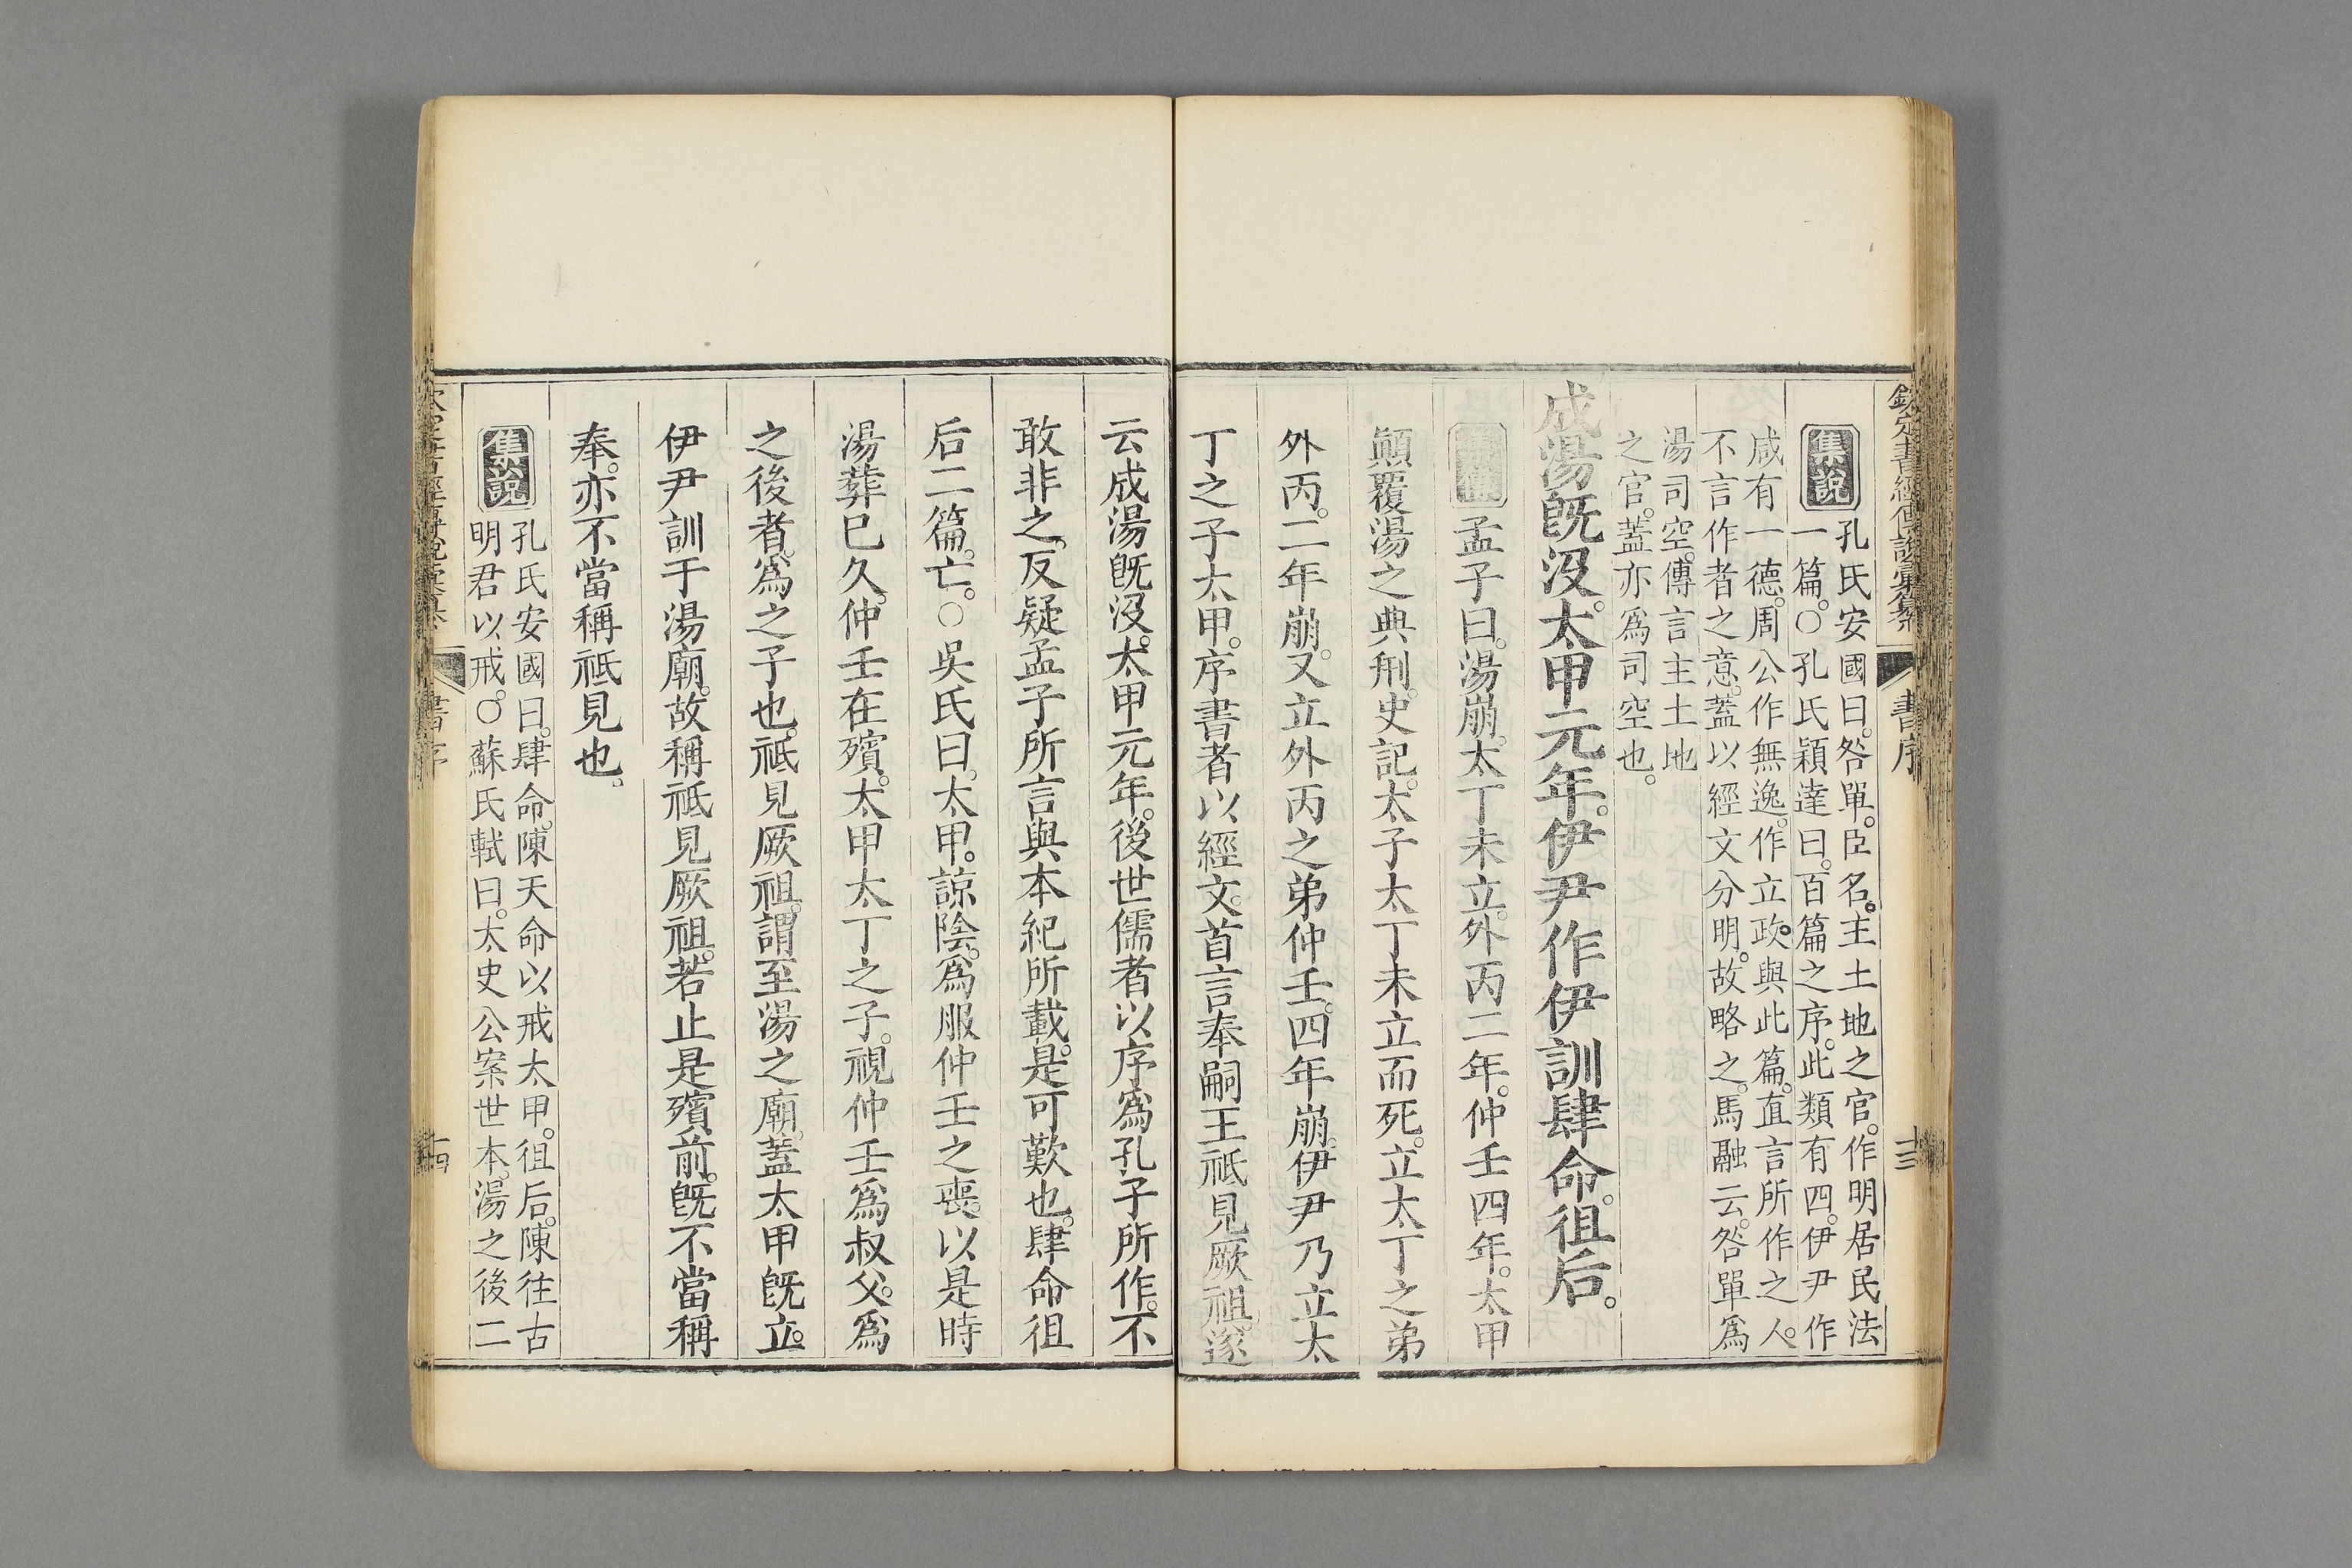 欽定書經傳說彙纂
書序
十三
集說
孔氏安國曰。咎單。臣名。主土地之官。作明居民法
一篇。○孔氏穎達曰。百篇之序。此類有四。伊尹作
咸有一德。周公作無逸。作立政。與此篇。直言所作之人。
不言作者之意。蓋以經文分明。故略之。馬融云。咎單爲
湯司空。傳言主土地
之官。蓋亦爲司空也。
成湯旣沒。太甲元年。伊尹作伊訓肆命。徂后。
集傳
孟子曰。湯崩。太丁未立。外丙二年。仲壬四年。太甲
顚覆湯之典刑。史記。太子太丁未立而死。立太丁之弟
外丙。二年崩。又立外丙之弟仲壬。四年崩。伊尹乃立太
丁之子太甲。序書者以經文。首言奉嗣王祗見厥祖。遂
云成湯旣沒。太甲元年。後世儒者以序爲孔子所作。不
敢非之。反疑孟子所言與本紀所載。是可歎也。肆命徂
后二篇。亡。○吳氏曰。太甲。諒陰。爲服仲壬之喪。以是時
湯葬已久。仲壬在殯。太甲太丁之子。視仲壬爲叔父。爲
之後者。爲之子也。祗見厥祖。謂至湯之廟。蓋太甲旣立。
伊尹訓于湯廟。故稱祗見厥祖。若止是殯前。旣不當稱
奉。亦不當稱祗見也。
集說
孔氏安國曰。肆命。陳天命以戒太甲。徂后。陳往古
明君以戒。○蘇氏軾曰。太史公案世本。湯之後二
書序
十四